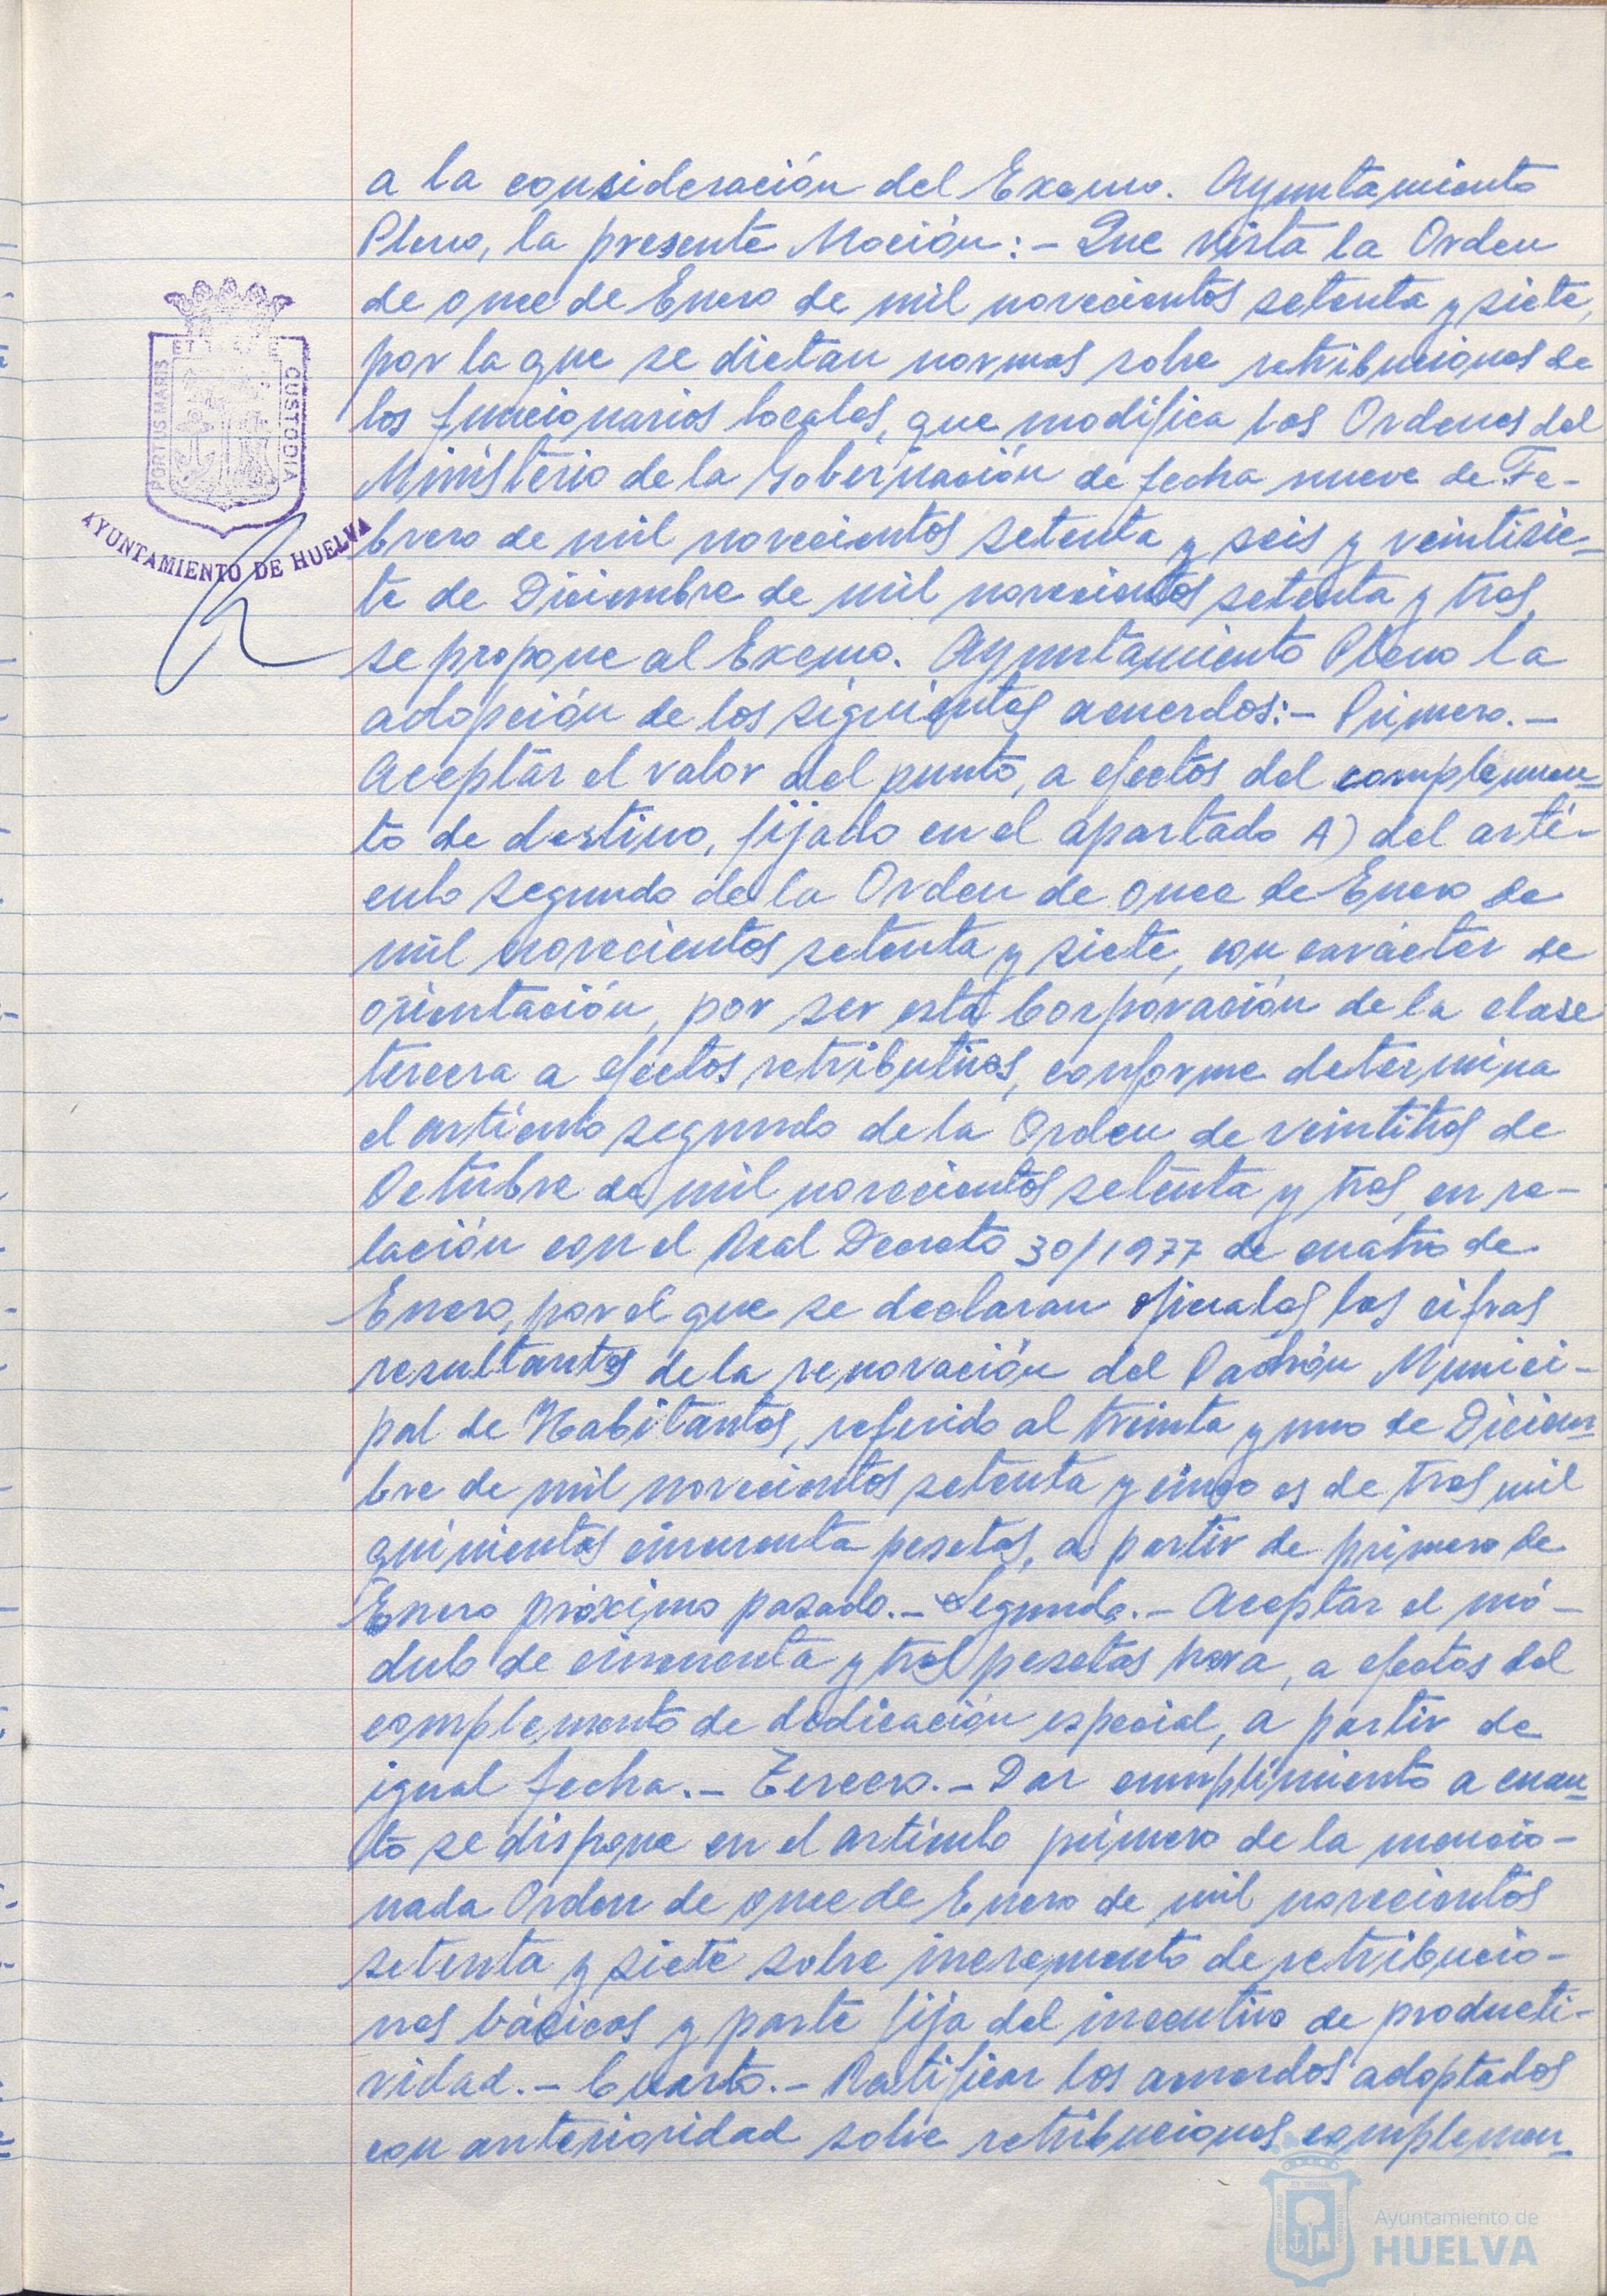 a la consideración del Excmo. Ayuntamiento
Pleno, la presente Moción:- Que vista la Orden
de once de Enero de mil novecientos setenta y siete,
por la que se dictan normas sobre retribuciones de
los funcionarios locales, que modifica las Ordenes del
Ministerio de la Gobernación de fecha nueve de Fe-
brero de mil novecientos setenta y seis y veintisie-
te de Diciembre de mil novecientos setenta y tres,
se propone al Excmo. Ayuntamiento Pleno la
adopción de los siguientes acuerdos:- Primero.-
Aceptar el valor del punto, a efectos del complemen-
to de destino, fijado en el apartado A) del artí-
culo segundo de la Orden de once de Enero de
mil novecientos setenta y siete, con carácter de
orientación, por ser esta Corporación de la clase
tercera a efectos retributivos, conforme determina
el artículo segundo de la Orden de veintitres de
Octubre de mil novecientos setenta y tres, en re-
lación con el Real Decreto 30/1977 de cuatro de
Enero, por el que se declaran oficiales las cifras
resultantes de la renovación del Padrón Munici-
pal de Habitantes, referido al treinta y uno de Diciem-
bre de mil novecientos setenta y cinco es de tres mil
quinientas cincuenta pesetas, a partir de primero de
Enero próximo pasado.- Segundo.- Aceptar el mó-
dulo de cincuenta y tres pesetas hora, a efectos del
complemento de dedicación especial, a partir de
igual fecha.- Tercero.- Dar cumplimiento a cuan-
to se dispone en el artículo primero de la mencio-
nada Orden de once de Enero de mil novecientos
setenta y siete sobre incremento de retribucio-
nes básicas y parte fija del incentivo de producti-
vidad.- Cuarto.- Ratificar los acuerdos adoptados
con anterioridad sobre retribuciones complemen-
PORTUS MARIS
CUSTODIA
AYUNTAMIENTO DE HUELVA
Ayuntamiento de
HUELVA